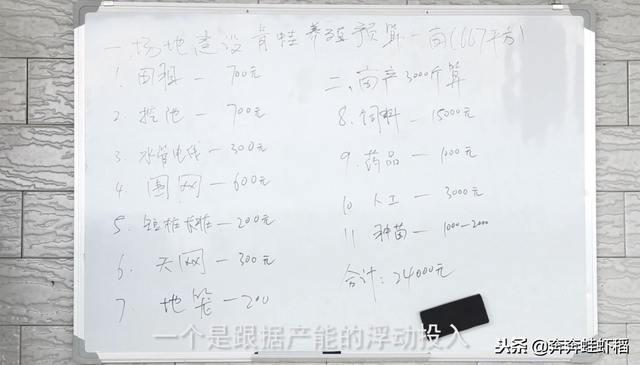 一、场地建设青蛙养殖预算一亩(667平方)
1. 田租 — 700元
2. 挖池 — 700元
3. 水管电线 — 300元
4. 围网 — 600元
5. 短桩长桩 — 200元
6. 天网 — 300元
7. 地笼 — 200
二、亩产3000斤算
8. 饲料 — 15000元
9. 药品 — 1000元
10 人工 — 3000元
11 种苗 — 1000—2000
合计: 24000元
一个是跟据产能的浮动投入
头条@奔奔蛙虾稻